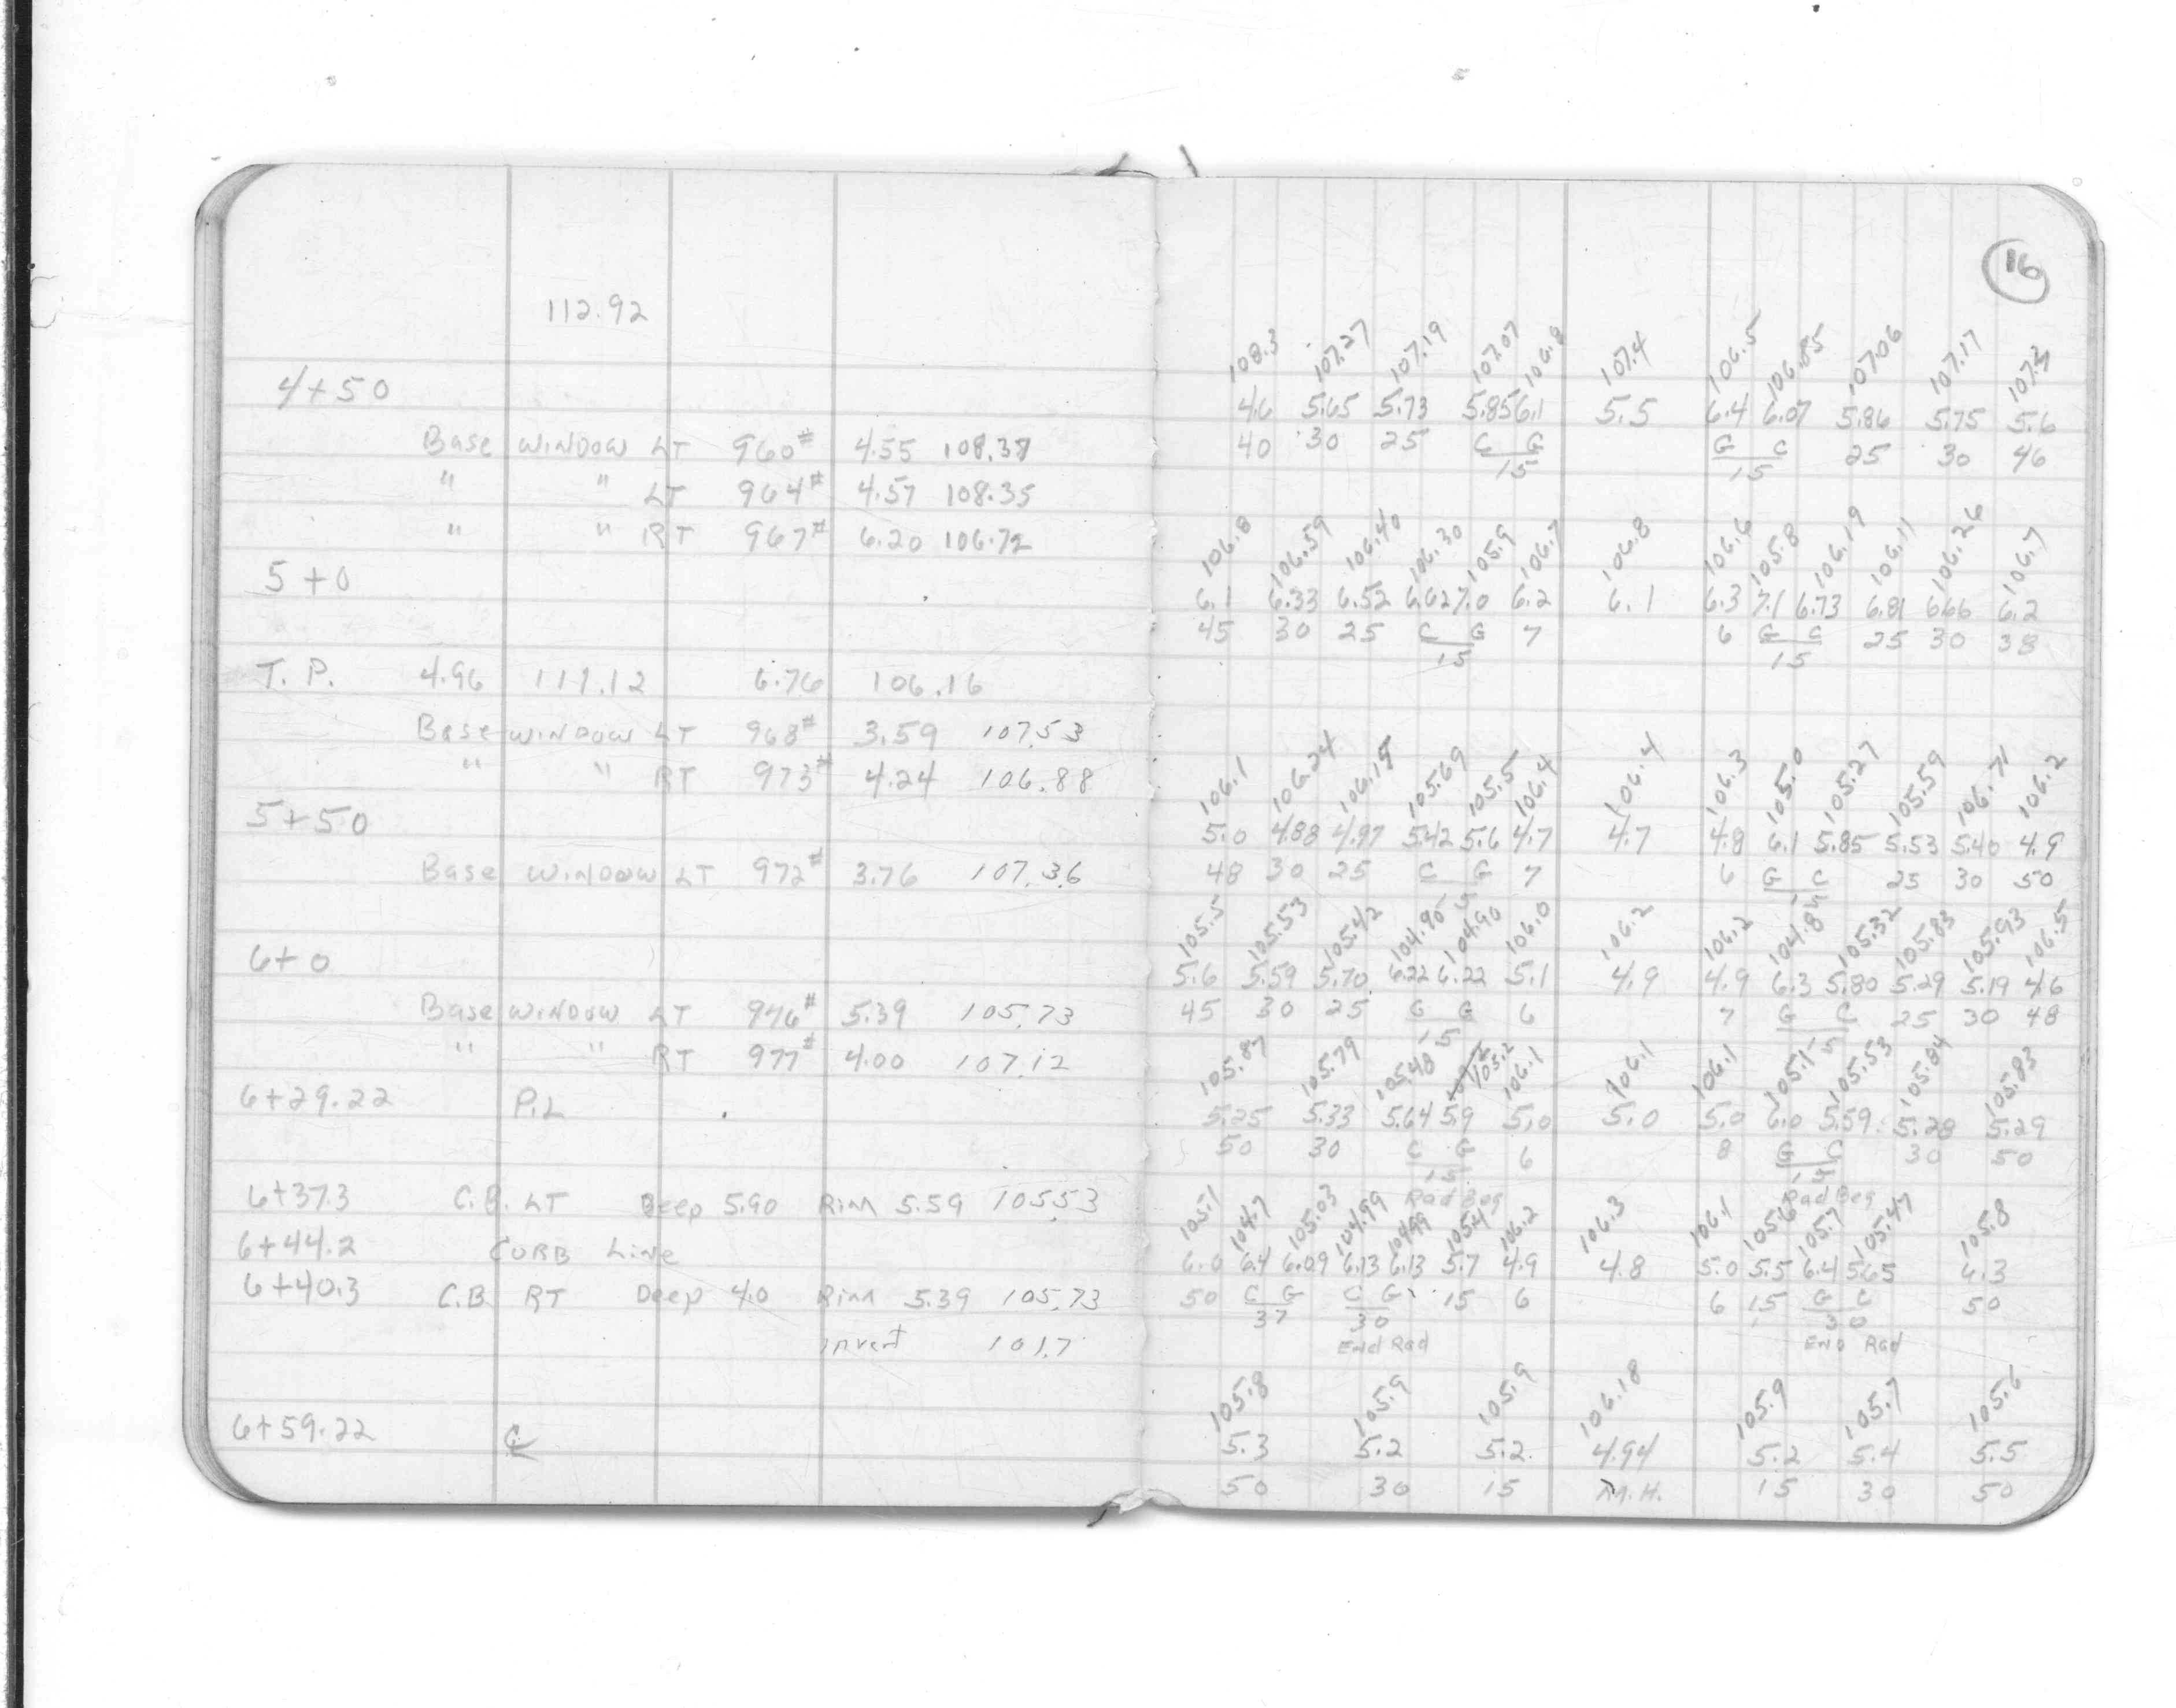 112.92
4+50
Base WINDOW LT 960# 4.55 108.37
" " LT 964# 4.57 108.35
" " RT 967# 6.20 106.72
5+0
T.P. 4.96 111.12 6.76 106.16
Base WINDOW LT 968# 3.59 107.53
" " RT 973# 4.24 106.88
5+50
Base WINDOW LT 972# 3.76 107.36
6+0
Base WINDOW LT 976# 5.39 105.73
" " RT 977# 4.00 107.12
6+29.22 P.L
6+37.3 C.B. LT Deep 5.90 Rim 5.59 105.53
6+44.2 CURB Line
6+40.3 C.B. RT Deep 4.0 Rim 5.39 105.73
invert 101.7
6+59.22 ℄
16
108.3 107.27 107.19 107.07 106.8 107.4 106.5 106.85 107.06 107.17 107.3
4.6 5.65 5.73 5.85 6.1 5.5 6.4 6.07 5.86 5.75 5.6
40 30 25 C G G C 25 30 46
15 15
106.8 106.59 106.40 106.30 105.9 106.7 106.8 106.6 105.8 106.19 106.11 106.26 106.7
6.1 6.33 6.52 6.62 7.0 6.2 6.1 6.3 7.1 6.73 6.81 6.66 6.2
45 30 25 C G 7 6 G C 25 30 38
15 15
106.1 106.24 106.15 105.69 105.5 106.4 106.4 106.3 105.0 105.27 105.59 106.71 106.2
5.0 4.88 4.97 5.42 5.6 4.7 4.7 4.8 6.1 5.85 5.53 5.40 4.9
48 30 25 C G 7 6 G C 25 30 50
15 15
105.5 105.53 105.42 104.90 104.90 106.0 106.2 106.2 104.8 105.32 105.83 105.93 106.5
5.6 5.59 5.70 6.22 6.22 5.1 4.9 4.9 6.3 5.80 5.29 5.19 4.6
45 30 25 G G 6 7 G C 25 30 48
15 15
105.87 105.79 105.48 105.2 106.1 106.1 106.1 105.1 105.53 105.84 105.83
5.25 5.33 5.64 5.9 5.0 5.0 5.0 6.0 5.59 5.28 5.29
50 30 C G 6 8 G C 30 50
15 15
Rad Beg Rad Beg
105.1 104.7 105.03 104.99 104.99 105.4 106.2 106.3 106.1 105.6 105.7 105.47 105.8
6.0 6.4 6.09 6.13 6.13 5.7 4.9 4.8 5.0 5.5 6.4 5.65 6.3
50 C G C G 15 6 6 15 G C 50
37 30 30
End Rad END Rad
105.8 105.9 105.9 106.18 105.9 105.7 105.6
5.3 5.2 5.2 4.94 5.2 5.4 5.5
50 30 15 M.H. 15 30 50